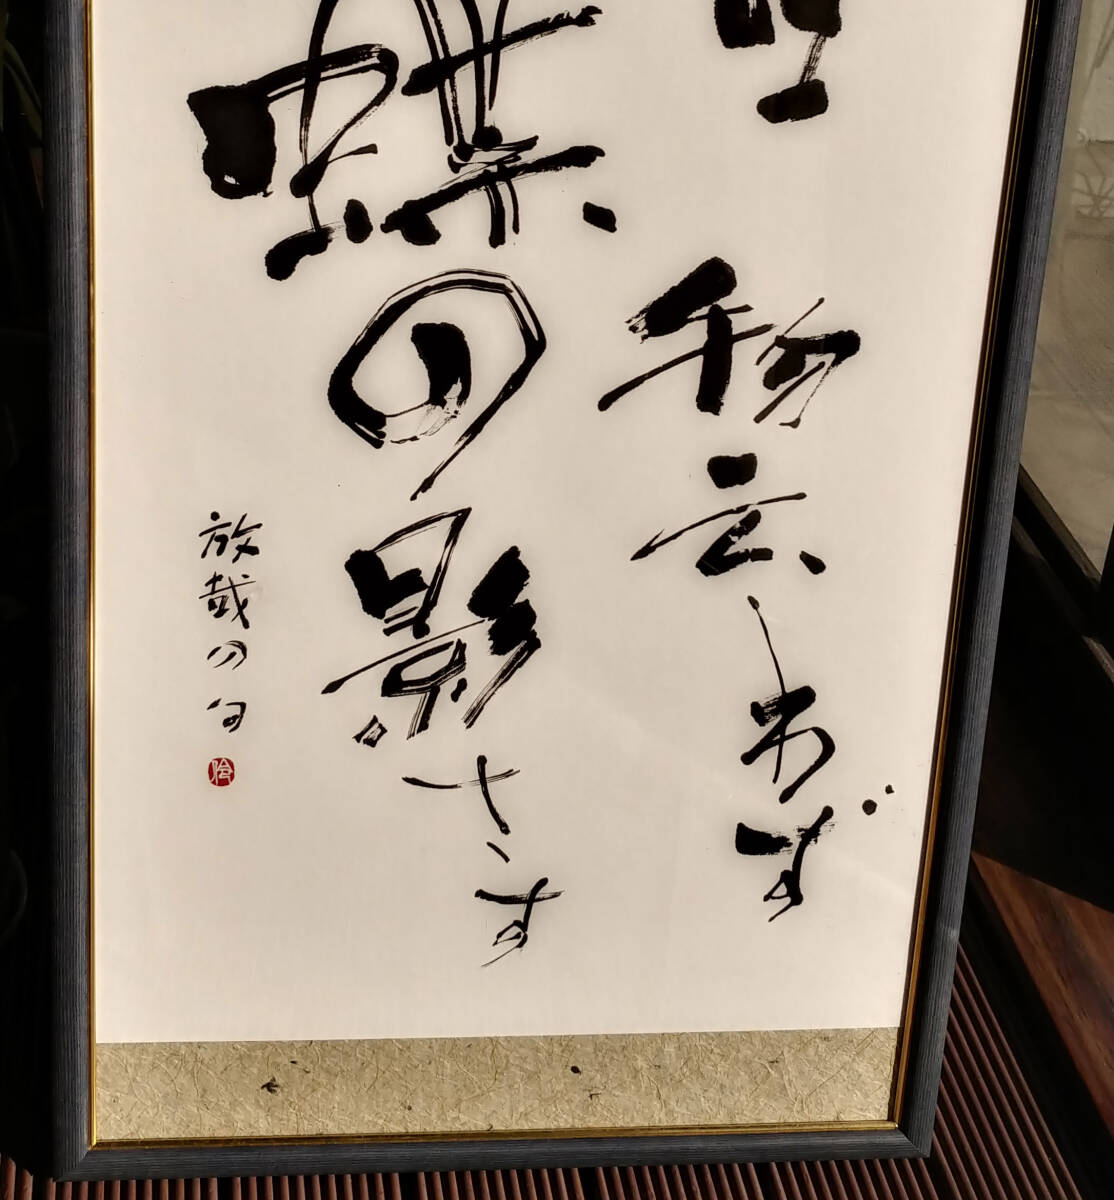 物云わず
蝶の影さす
放哉の句